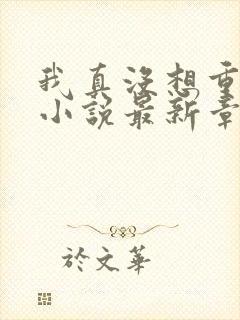 我真没想重
小说最新章
於文华